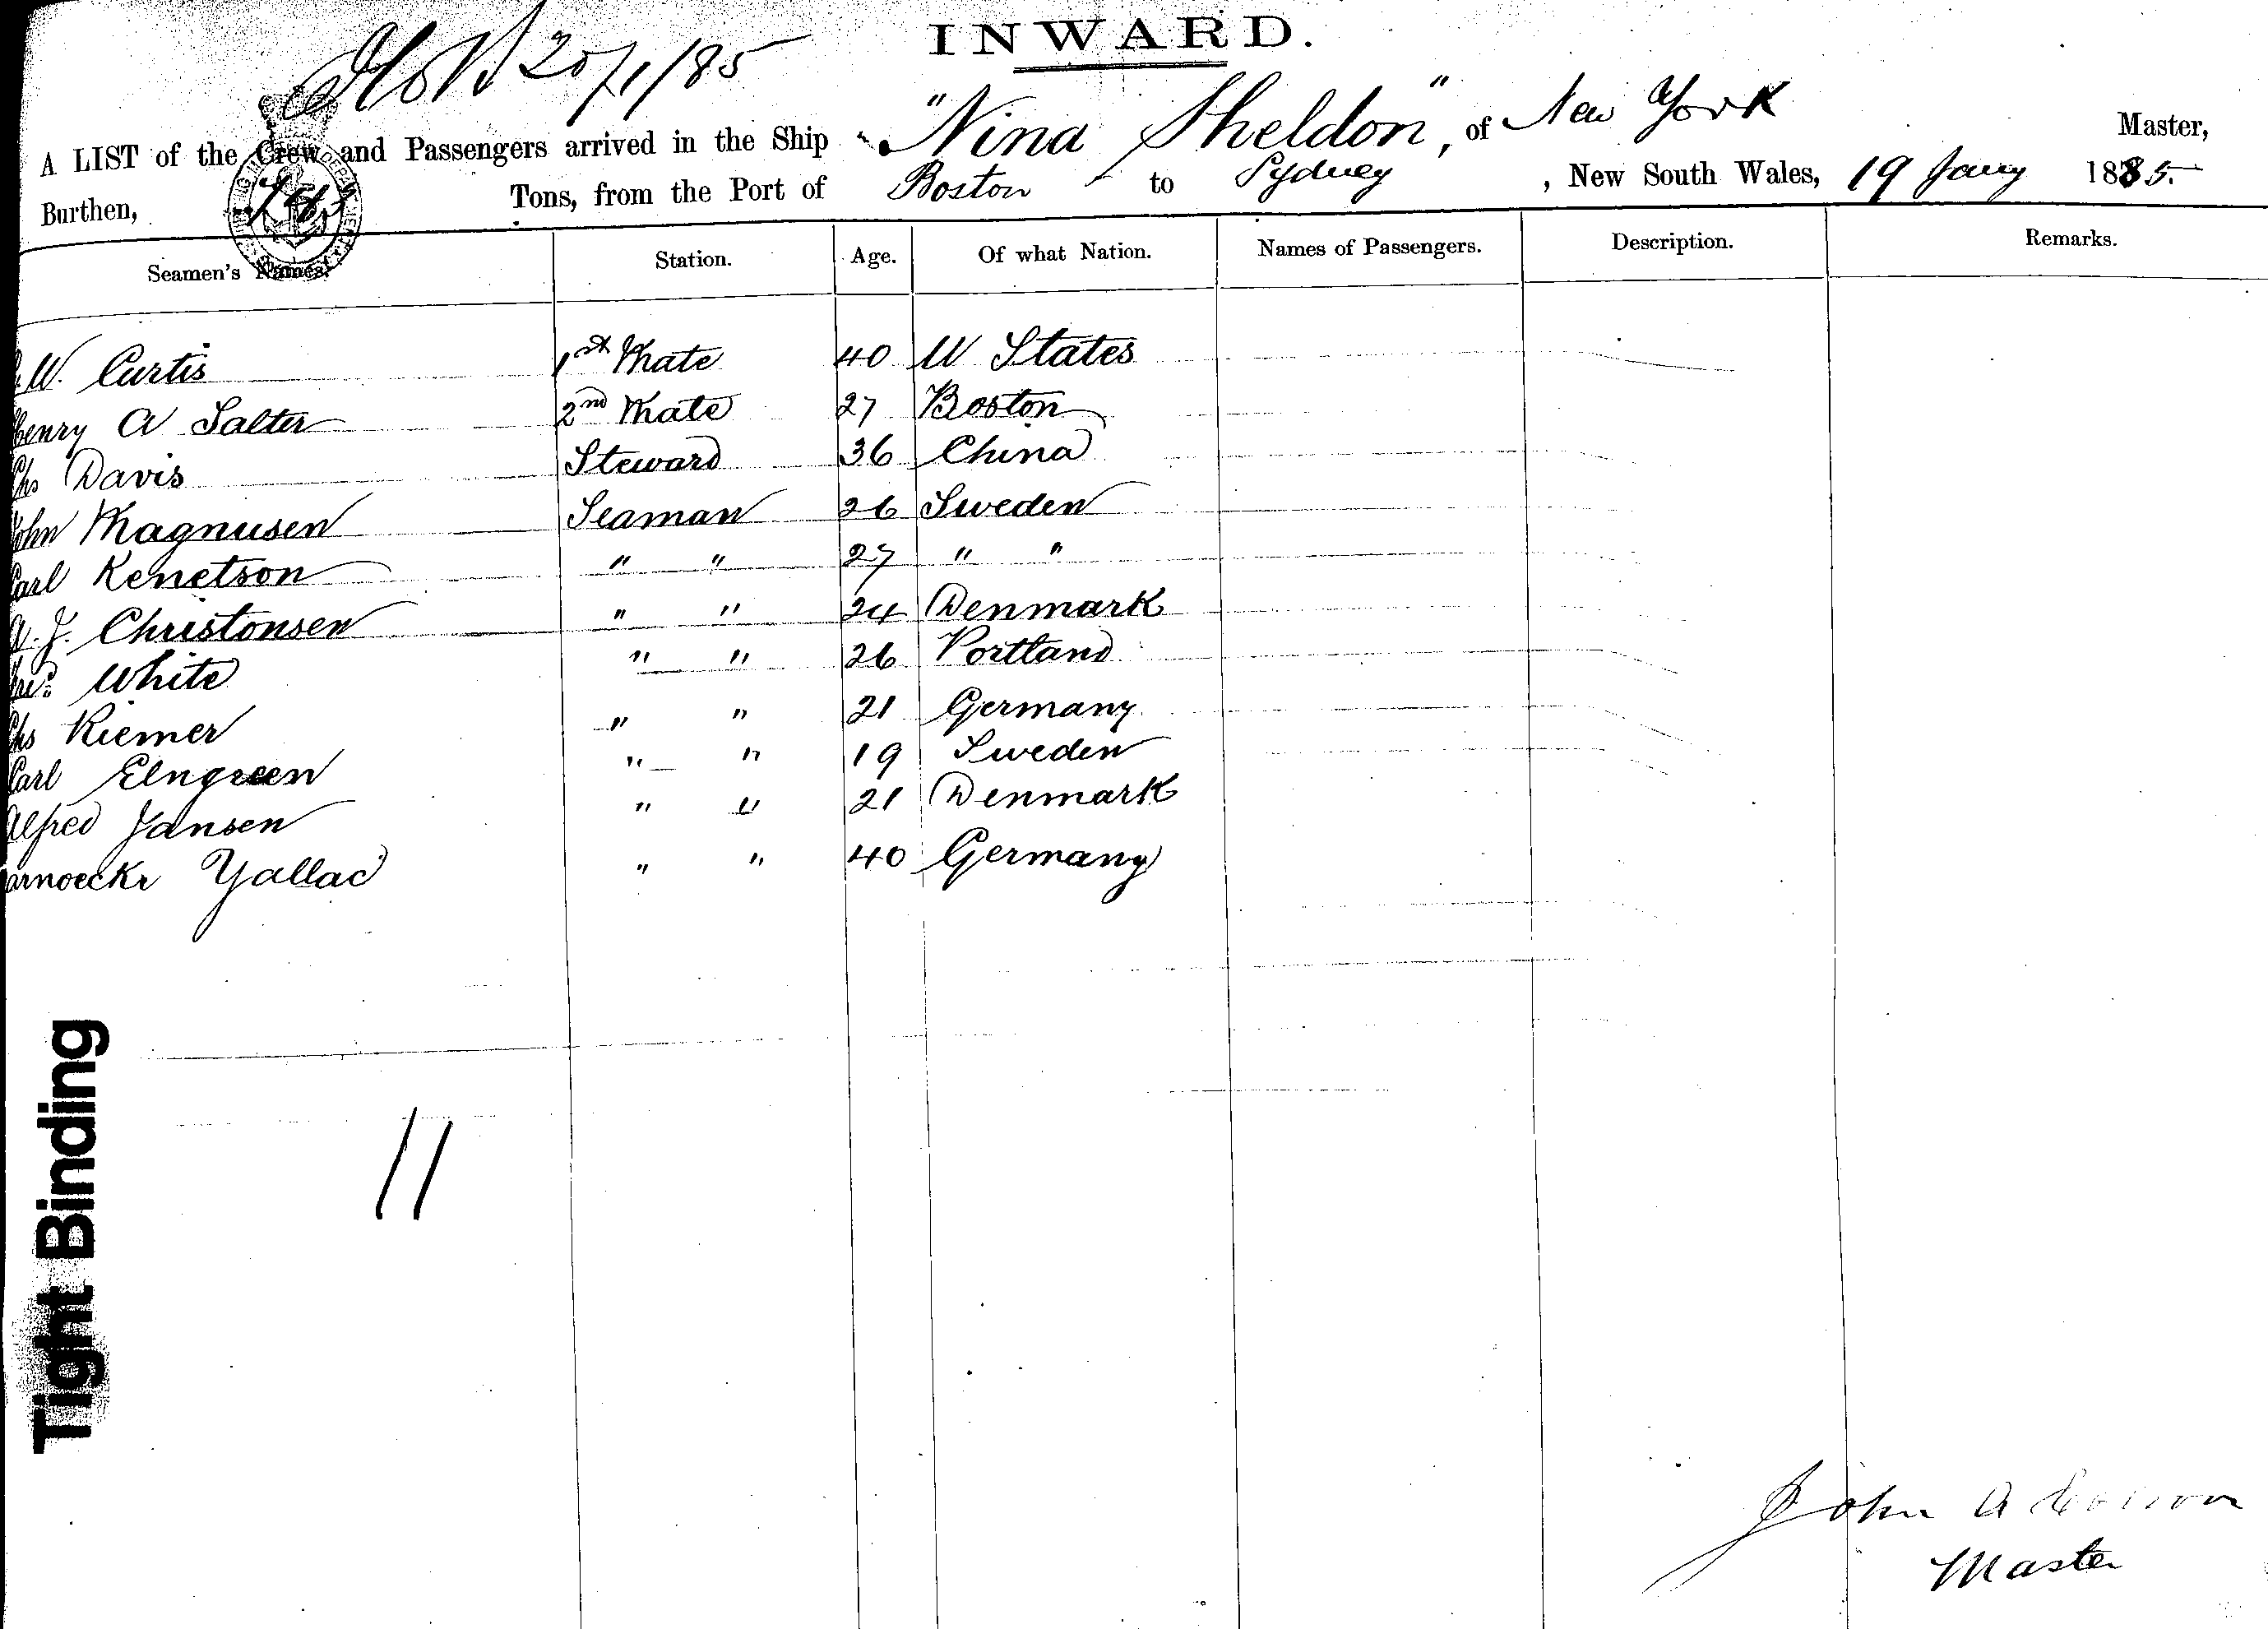 INWARD.
20/1/85
A LIST of the Crew and Passengers arrived in the Ship "Nina Sheldon", of New York Master,
Burthen, Tons, from the Port of Boston to Sydney, New South Wales, 19 Jany 1885.
Seamen's Names. Station. Age. Of what Nation. Names of Passengers. Description. Remarks.
W. Curtis 1st Mate 40 U States
Henry A Salter 2nd Mate 27 Boston
Chs Davis Steward 36 China
John Magnusen Seaman 26 Sweden
Carl Kenetson " " 27 " "
J. Christonsen " " 24 Denmark
White " " 26 Portland
Chs Riemer " " 21 Germany
Carl Elngreen " " 19 Sweden
Alfred Jansen " " 21 Denmark
Yallac " " 40 Germany
11
Tight Binding
John A
Master